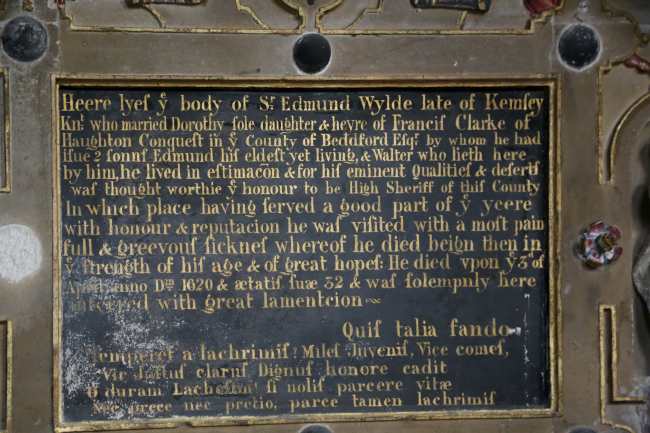 Heere lyes yͤ body of Sͬ. Edmund Wylde late of Kemſey
Knͭ. who married Dorothy ſole daughter & heyre of Francis Clarke of
Haughton Conqueſt in yͤ County of Beddford Eſqͬ. by whom he had
iſſue 2 ſonnſ Edmund hiſ eldeſt yet living, & Walter who lieth here
by him, he lived in eſtimacōn & for hiſ eminent Qualitieſ & deſertſ
waſ thought worthie yͤ honour to be High Sheriff of thiſ County
In which place having ſerved a good part of yͤ yeere
with honour & reputacion he waſ viſited with a moſt pain
full & greevouſ ſickneſ whereof he died beign then in
yͤ ſtrength of hiſ age & of great hopeſ: He died vpon yͤ 3ͩ of
anno Dⁿⁱ 1620 & ætatiſ ſuæ 32 & waſ ſolempnly here
interred with great lamentcion
Quiſ talia fando
temperet a lachrimiſ? Mileſ Juveniſ, Vice comeſ,
clarus Dignuſ honore cadit
O duram Lacheſim! ſi noliſ parcere vitæ
Nec prece nec pretio, parce tamen lachrimiſ